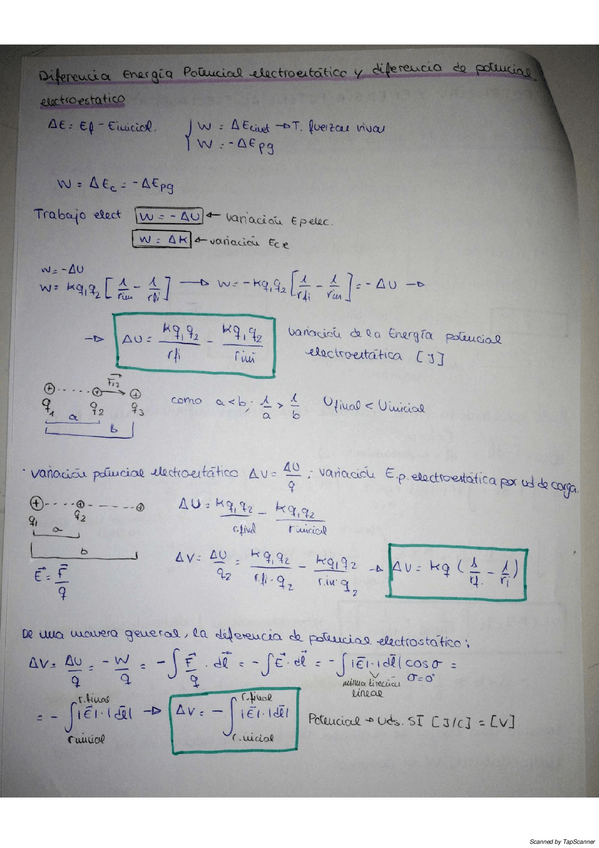 Diferencia Energía Potencial electroestático y diferencia de potencial
electroestático
ΔE = Ef - Einicial. { W = ΔEcinét → T. fuerzas vivas
W = -ΔEpg
W = ΔEc = -ΔEpg
Trabajo elect W = -ΔU ← variación Epelec.
W = ΔK ← variación Ece
W = -ΔU
W = kq1q2 [1/rini - 1/rfi] → W = -kq1q2 [1/rfi - 1/rini] = -ΔU →
→ ΔU = kq1q2/rfi - kq1q2/rini variación de la Energía potencial
electroestática [J]
F12
q1 q2 q3 como a<b; 1/a > 1/b Ufinal < Uinicial
a
b
· variación potencial electroestático ΔV = ΔU/q ; variación E.p. electroestática por ud de carga.
q1 q2 ΔU = kq1q2/r.final - kq1q2/r.inicial
a
b
E = F/q ΔV = ΔU/q2 = kq1q2/r.fi·q2 - kq1q2/r.in·q2 → ΔV = kq (1/rf. - 1/ri)
De una manera general, la deferencia de potencial electrostático:
ΔV = ΔU/q = -W/q = -∫F/q · dl = -∫E·dl = -∫|E|·|dl| cos σ =
misma dirección σ=0°
lineal
= -∫ r.inicial r.final |E|·|dl| → ΔV = -∫ r.inicial r.final |E|·|dl| Potencial → Uds. SI [J/C] = [V]
Scanned by TapScanner